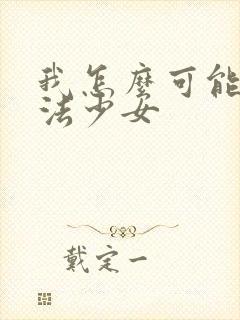 我怎麼可能
法少女
戴定一